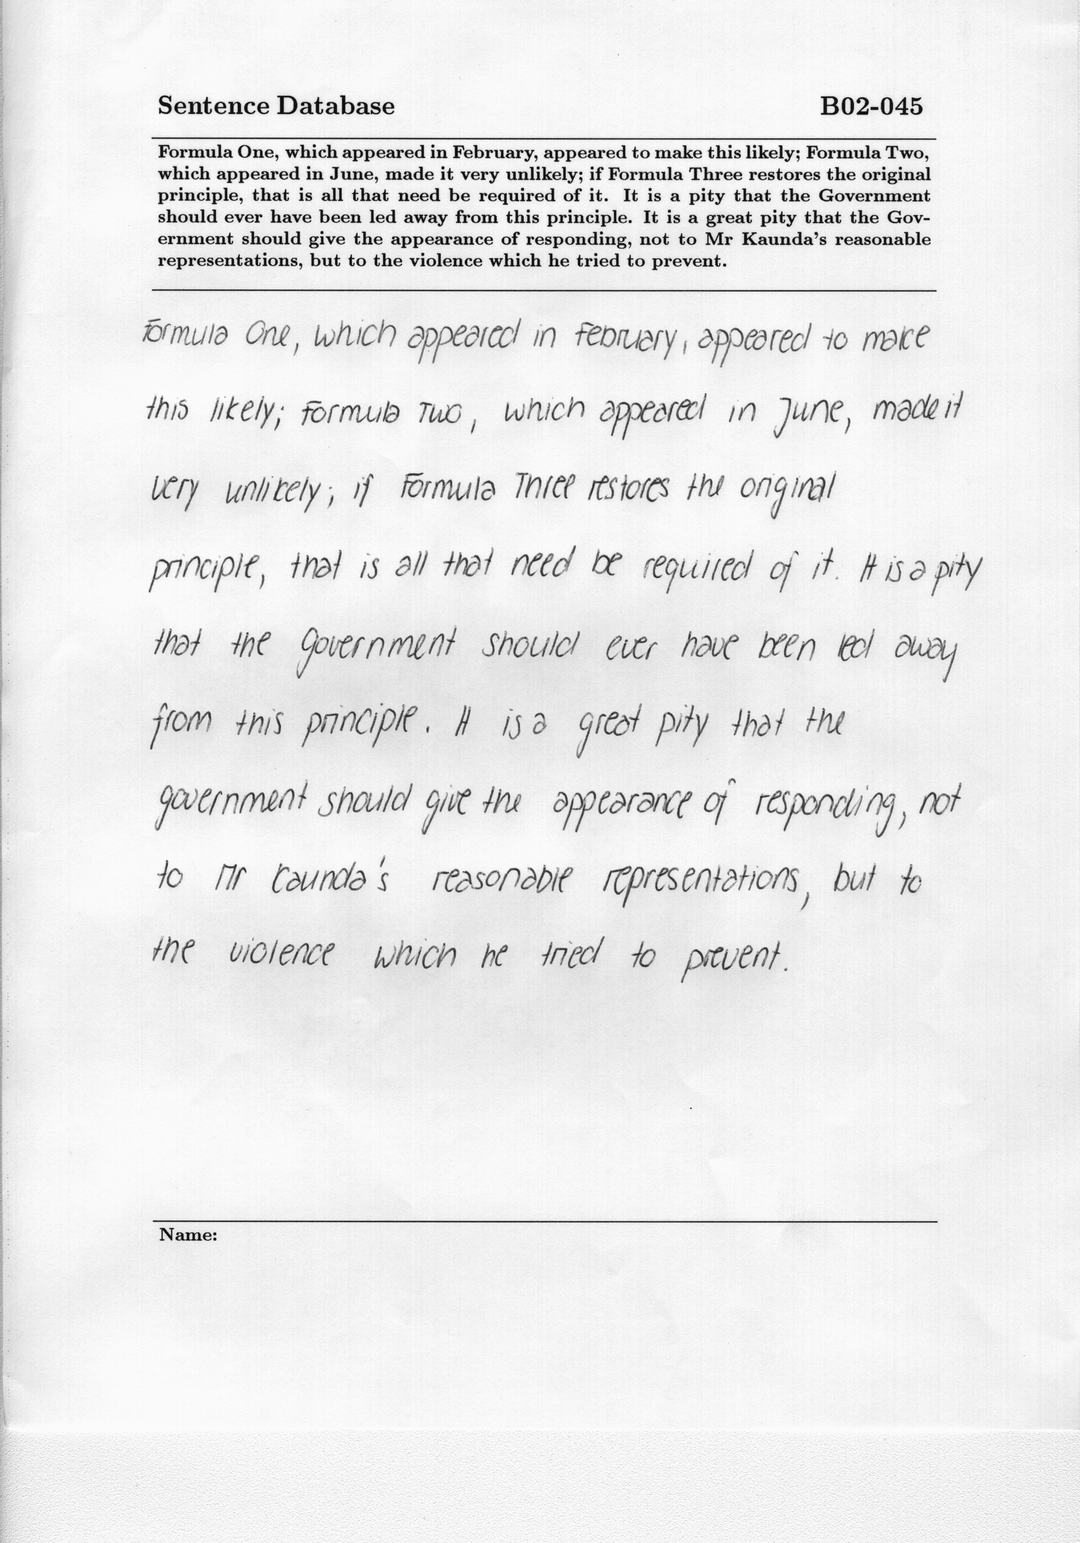 Sentence Database B02-045
Formula One, which appeared in February, appeared to make this likely; Formula Two,
which appeared in June, made it very unlikely; if Formula Three restores the original
principle, that is all that need be required of it. It is a pity that the Government
should ever have been led away from this principle. It is a great pity that the Gov-
ernment should give the appearance of responding, not to Mr Kaunda's reasonable
representations, but to the violence which he tried to prevent.
Formula One, which appeared in February, appeared to make
this likely; Formula Two, which appeared in June, made it
very unlikely; if Formula Three restores the original
principle, that is all that need be required of it. It is a pity
that the Government should ever have been led away
from this principle. It is a great pity that the
government should give the appearance of responding, not
to Mr Kaunda's reasonable representations, but to
the violence which he tried to prevent.
Name: